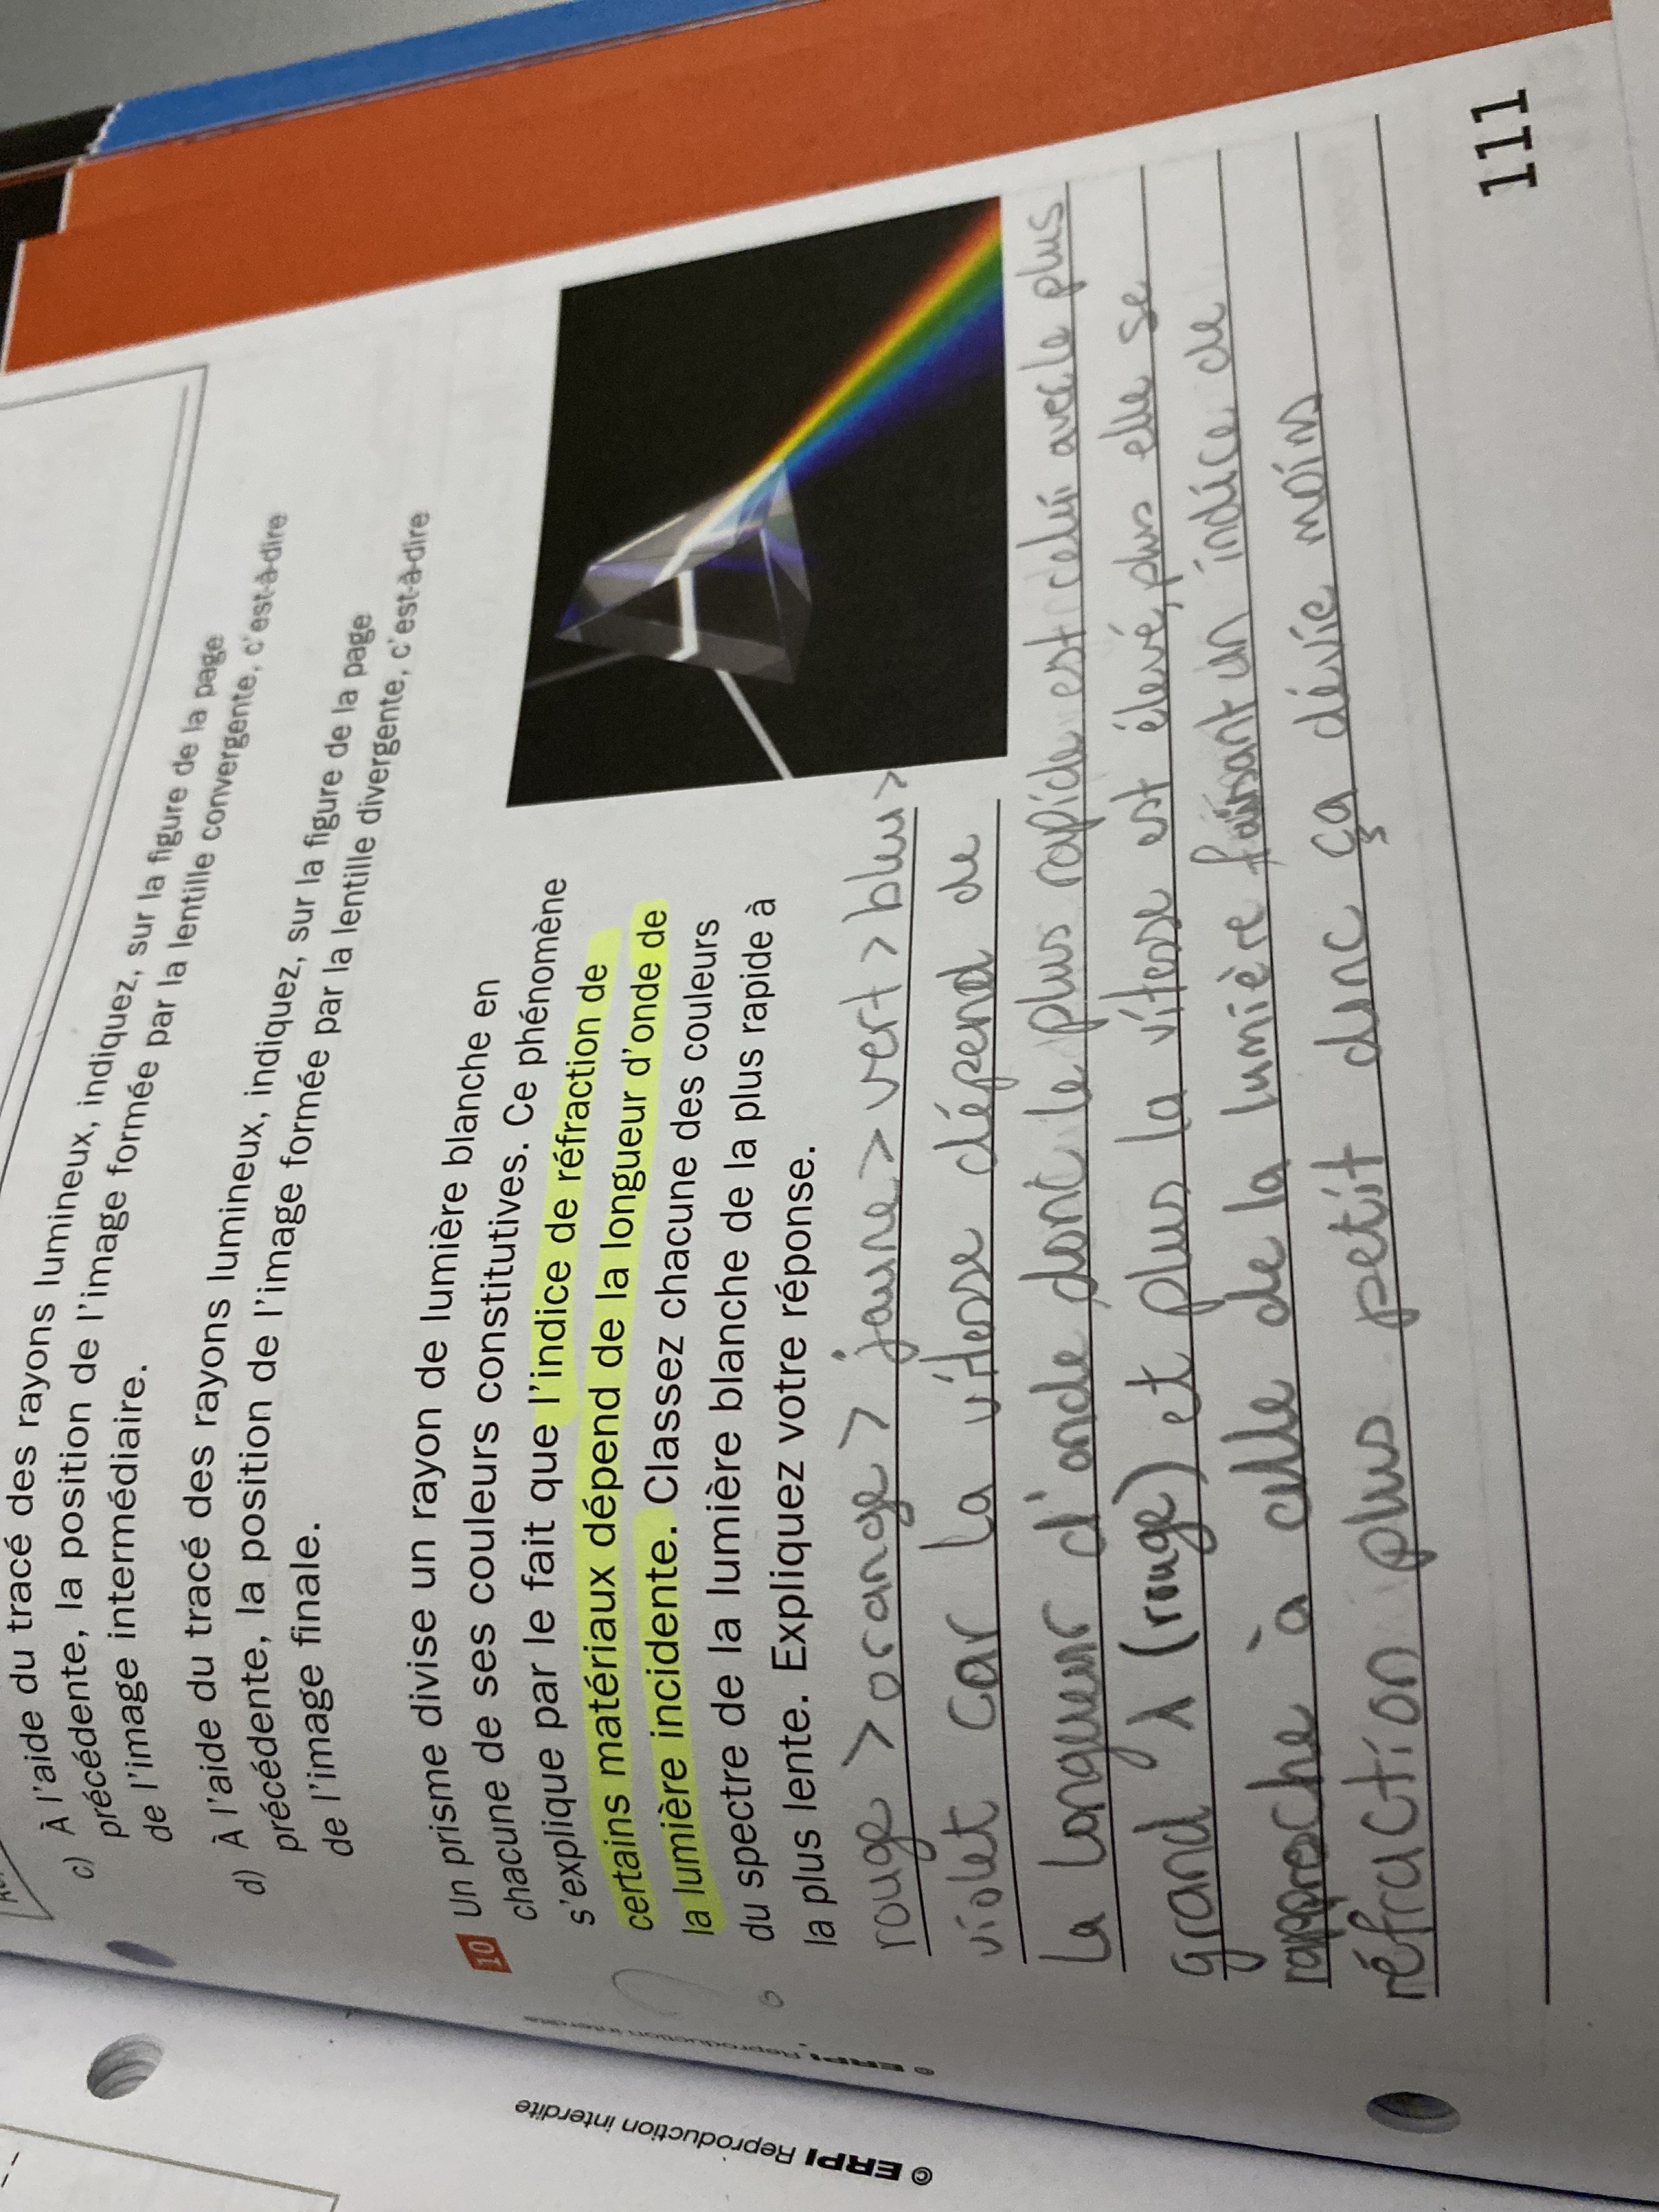 c) À l'aide du tracé des rayons lumineux, indiquez, sur la figure de la page
précédente, la position de l'image formée par la lentille convergente, c'est-à-dire
de l'image intermédiaire.
d) À l'aide du tracé des rayons lumineux, indiquez, sur la figure de la page
précédente, la position de l'image formée par la lentille divergente, c'est-à-dire
de l'image finale.
10 Un prisme divise un rayon de lumière blanche en
chacune de ses couleurs constitutives. Ce phénomène
s'explique par le fait que l'indice de réfraction de
certains matériaux dépend de la longueur d'onde de
la lumière incidente. Classez chacune des couleurs
du spectre de la lumière blanche de la plus rapide à
la plus lente. Expliquez votre réponse.
rouge > orange > jaune > vert > bleu >
violet car la vitesse dépend de
la longueur d'onde donc le plus rapide est celui avec le plus
grand λ (rouge) et plus la vitesse est élevé, plus elle se
rapproche à celle de la lumière faisant un indice de
réfraction plus petit donc ça dévie moins
111
© ERPI Reproduction interdite
© ERPI Reproduction interdite